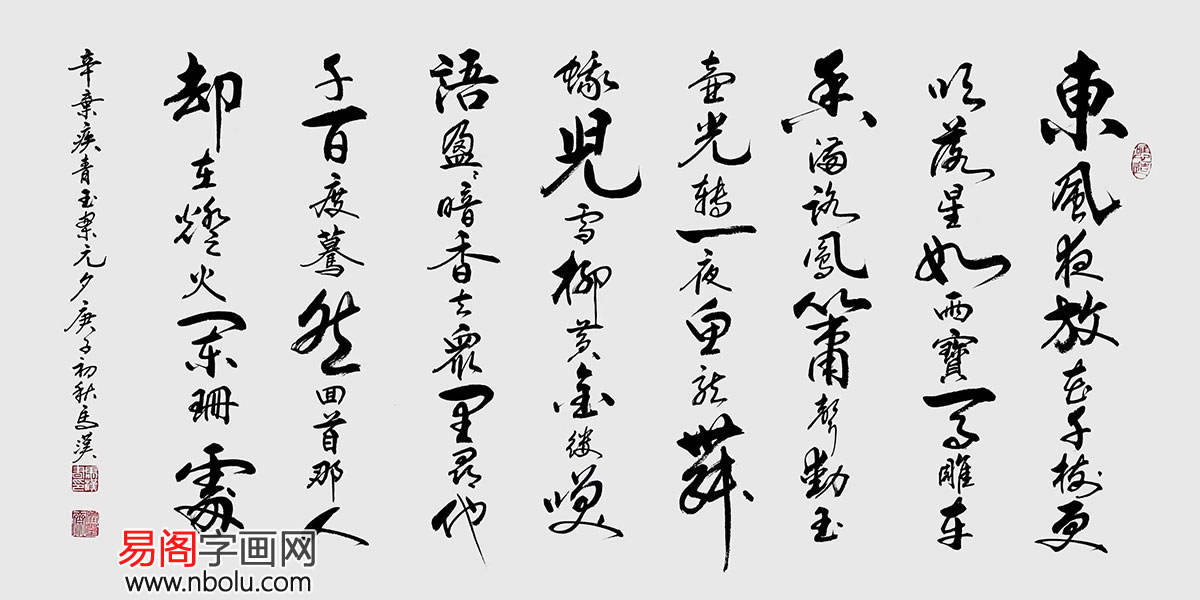 東風夜放花千樹更
吹落星如雨寶馬雕車
香滿路鳳簫聲動玉
壺光轉一夜魚龍舞
蛾兒雪柳黃金縷咲
語盈〻暗香去眾里尋他
千百度驀然回首那人
却在燈火闌珊處
辛棄疾青玉案元夕庚子初秋馬漢
易阁字画网
www.nbolu.com